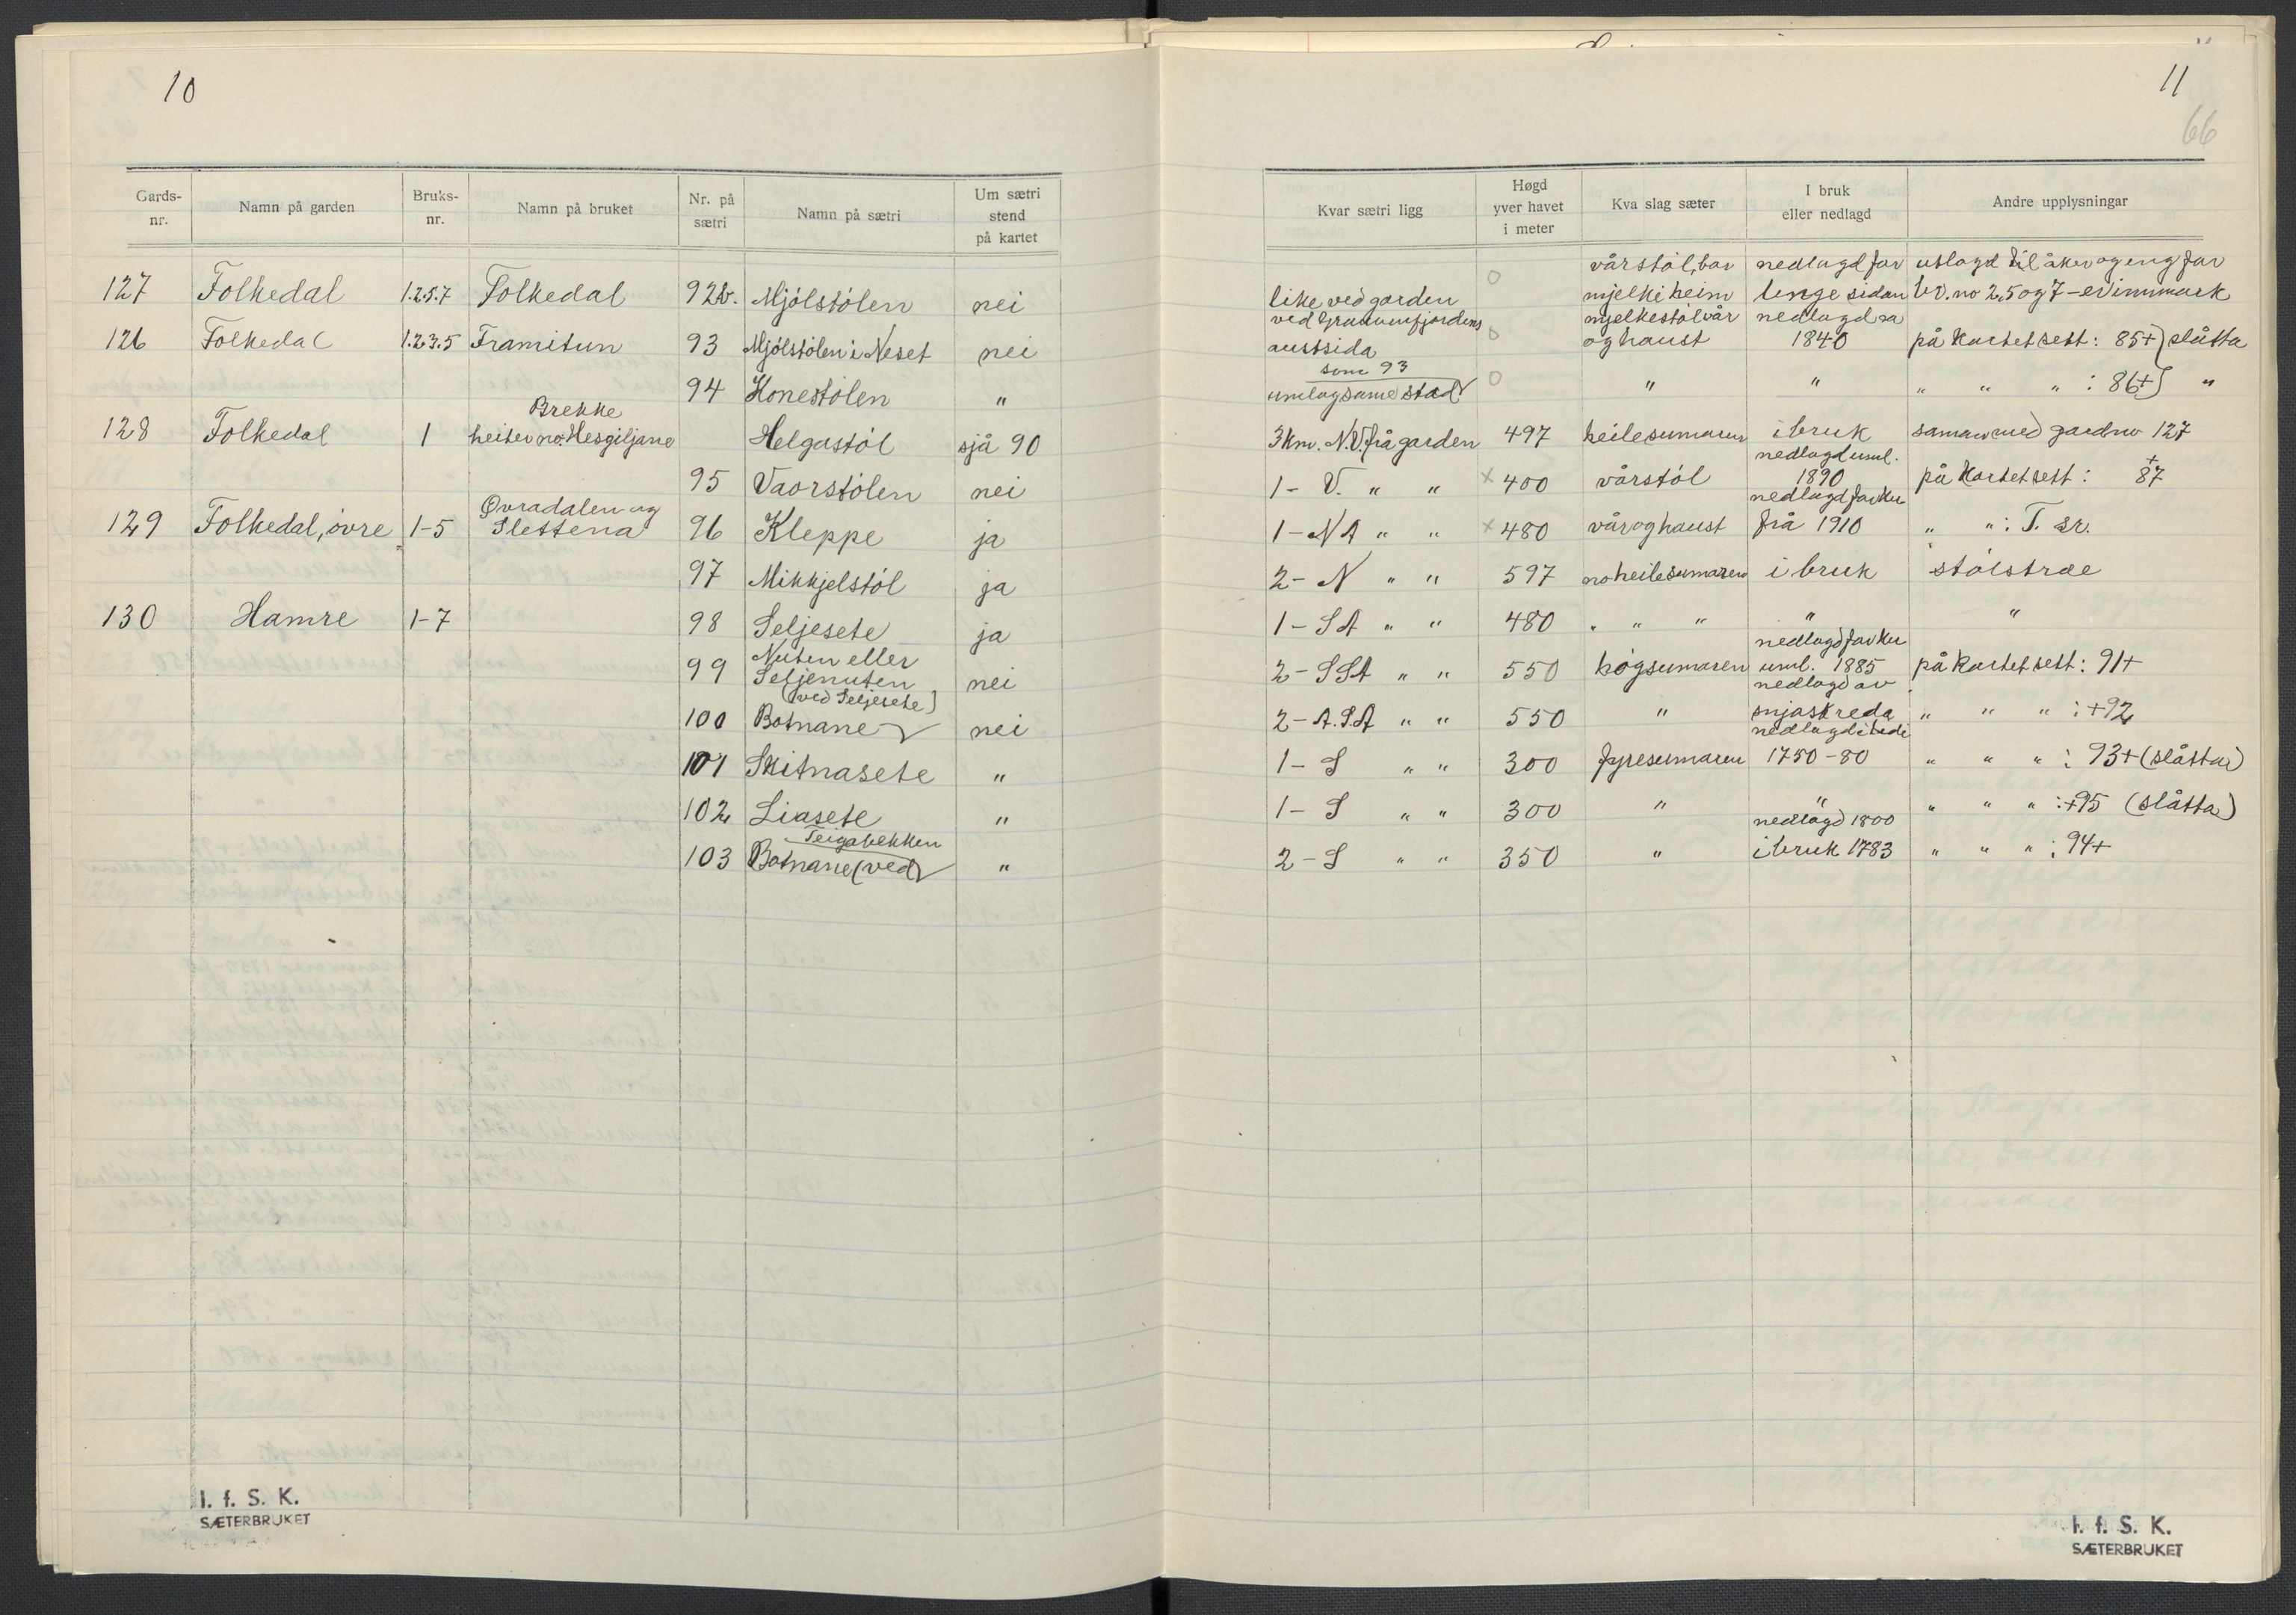 10
Gards-nr. Namn på garden Bruks-nr. Namn på bruket Nr. på sætri Namn på sætri Um sætri stend på kartet
127 Folkedal 1.2.5.7 Folkedal 92b. Mjólstólen nei
126 Folkedal 1.2.3.5 Framitun 93 Mjólstólen i Neset nei
94 Konestólen "
Brekke
128 Folkedal 1 heiter no: Hesgiljane Helgastól sjå 90
95 Vaorstólen nei
Øvradalen og
129 Folkedal, óvre 1-5 Slettena 96 Kleppe ja
97 Mikkjelstól ja
130 Hamre 1-7 98 Seljesete ja
Nuten eller
99 Seljenuten nei
(ved Seljesete)
100 Botnane nei
101 Skitnasete "
102 Liasete "
Teigabekken
103 Botnane (ved "
I. f. S. K.
SÆTERBRUKET
11
66
Kvar sætri ligg Høgd yver havet i meter Kva slag sæter I bruk eller nedlagd Andre upplysningar
vårstól, bar nedlagd for utlagd til åker og eng for
like ved garden 0 mjelki heim lenge sidan br. no 2,5 og 7 - er innmark
ved Gravenfjordens mjelkestól vår nedlagd ca
austsida 0 og haust 1840 på kartet sett: 85+} slåtta
som 93
umlag same stad 0 " " " " " : 86+} "
3 km. N.V. frå garden 497 heile sumaren i bruk saman med gardno 127
nedlagd uml.
1 - V. " " x 400 vårstól 1890 på kartet sett: 87+
nedlagd for ku
1 - NA " " x 480 vår og haust frå 1910 " " : T. sr.
2 - N " " 597 no heile sumaren i bruk stólstræ
1 - SA " " 480 " " " " "
nedlagd for ku
2 - SSA " " 550 hógsumaren uml. 1885 på kartet sett: 91+
nedlagd av
2 - A.S.A " " 550 " snjaskreda " " " : +92
nedlagd i tidi
1 - S " " 300 fyresumaren 1750-80 " " " : 93+ (slåtta)
1 - S " " 300 " " " " " : +95 (slåtta)
nedlagd 1800
2 - S " " 350 " i bruk 1783 " " " : 94+
I. f. S. K.
SÆTERBRUKET